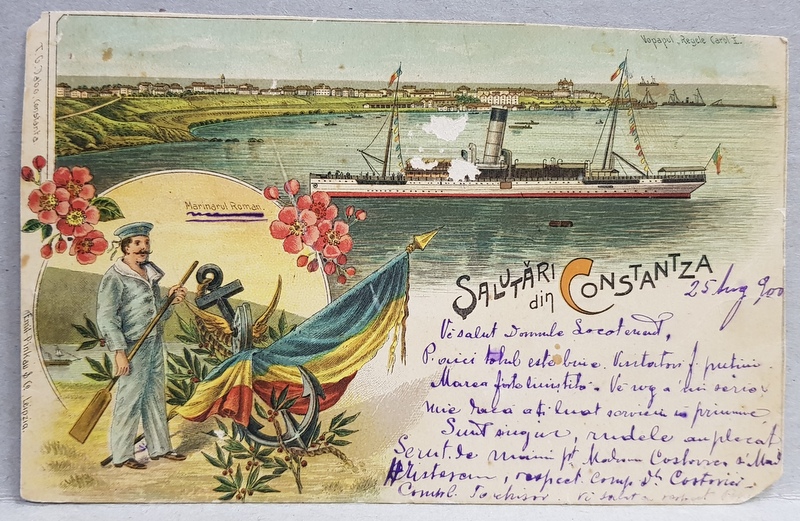 Vopapul „Regele Carol I.
Marinarul Roman.
SALUTĂRI
din CONSTANTZA
25 Aug 900
Vĕ salut Domnule Locotenent,
P'aici totul este bine. Visitatori f. putini.
Marea forte linistita. Vĕ rog a'mi scrie
mie daca ați luat serviciu in primire
Sunt singur, rudele au plecat
Serut. de maini pt Madam Costovici si Mad
respect. Comp. Dr. Costovici.
Emil Pinkau & Co. Leipzig.